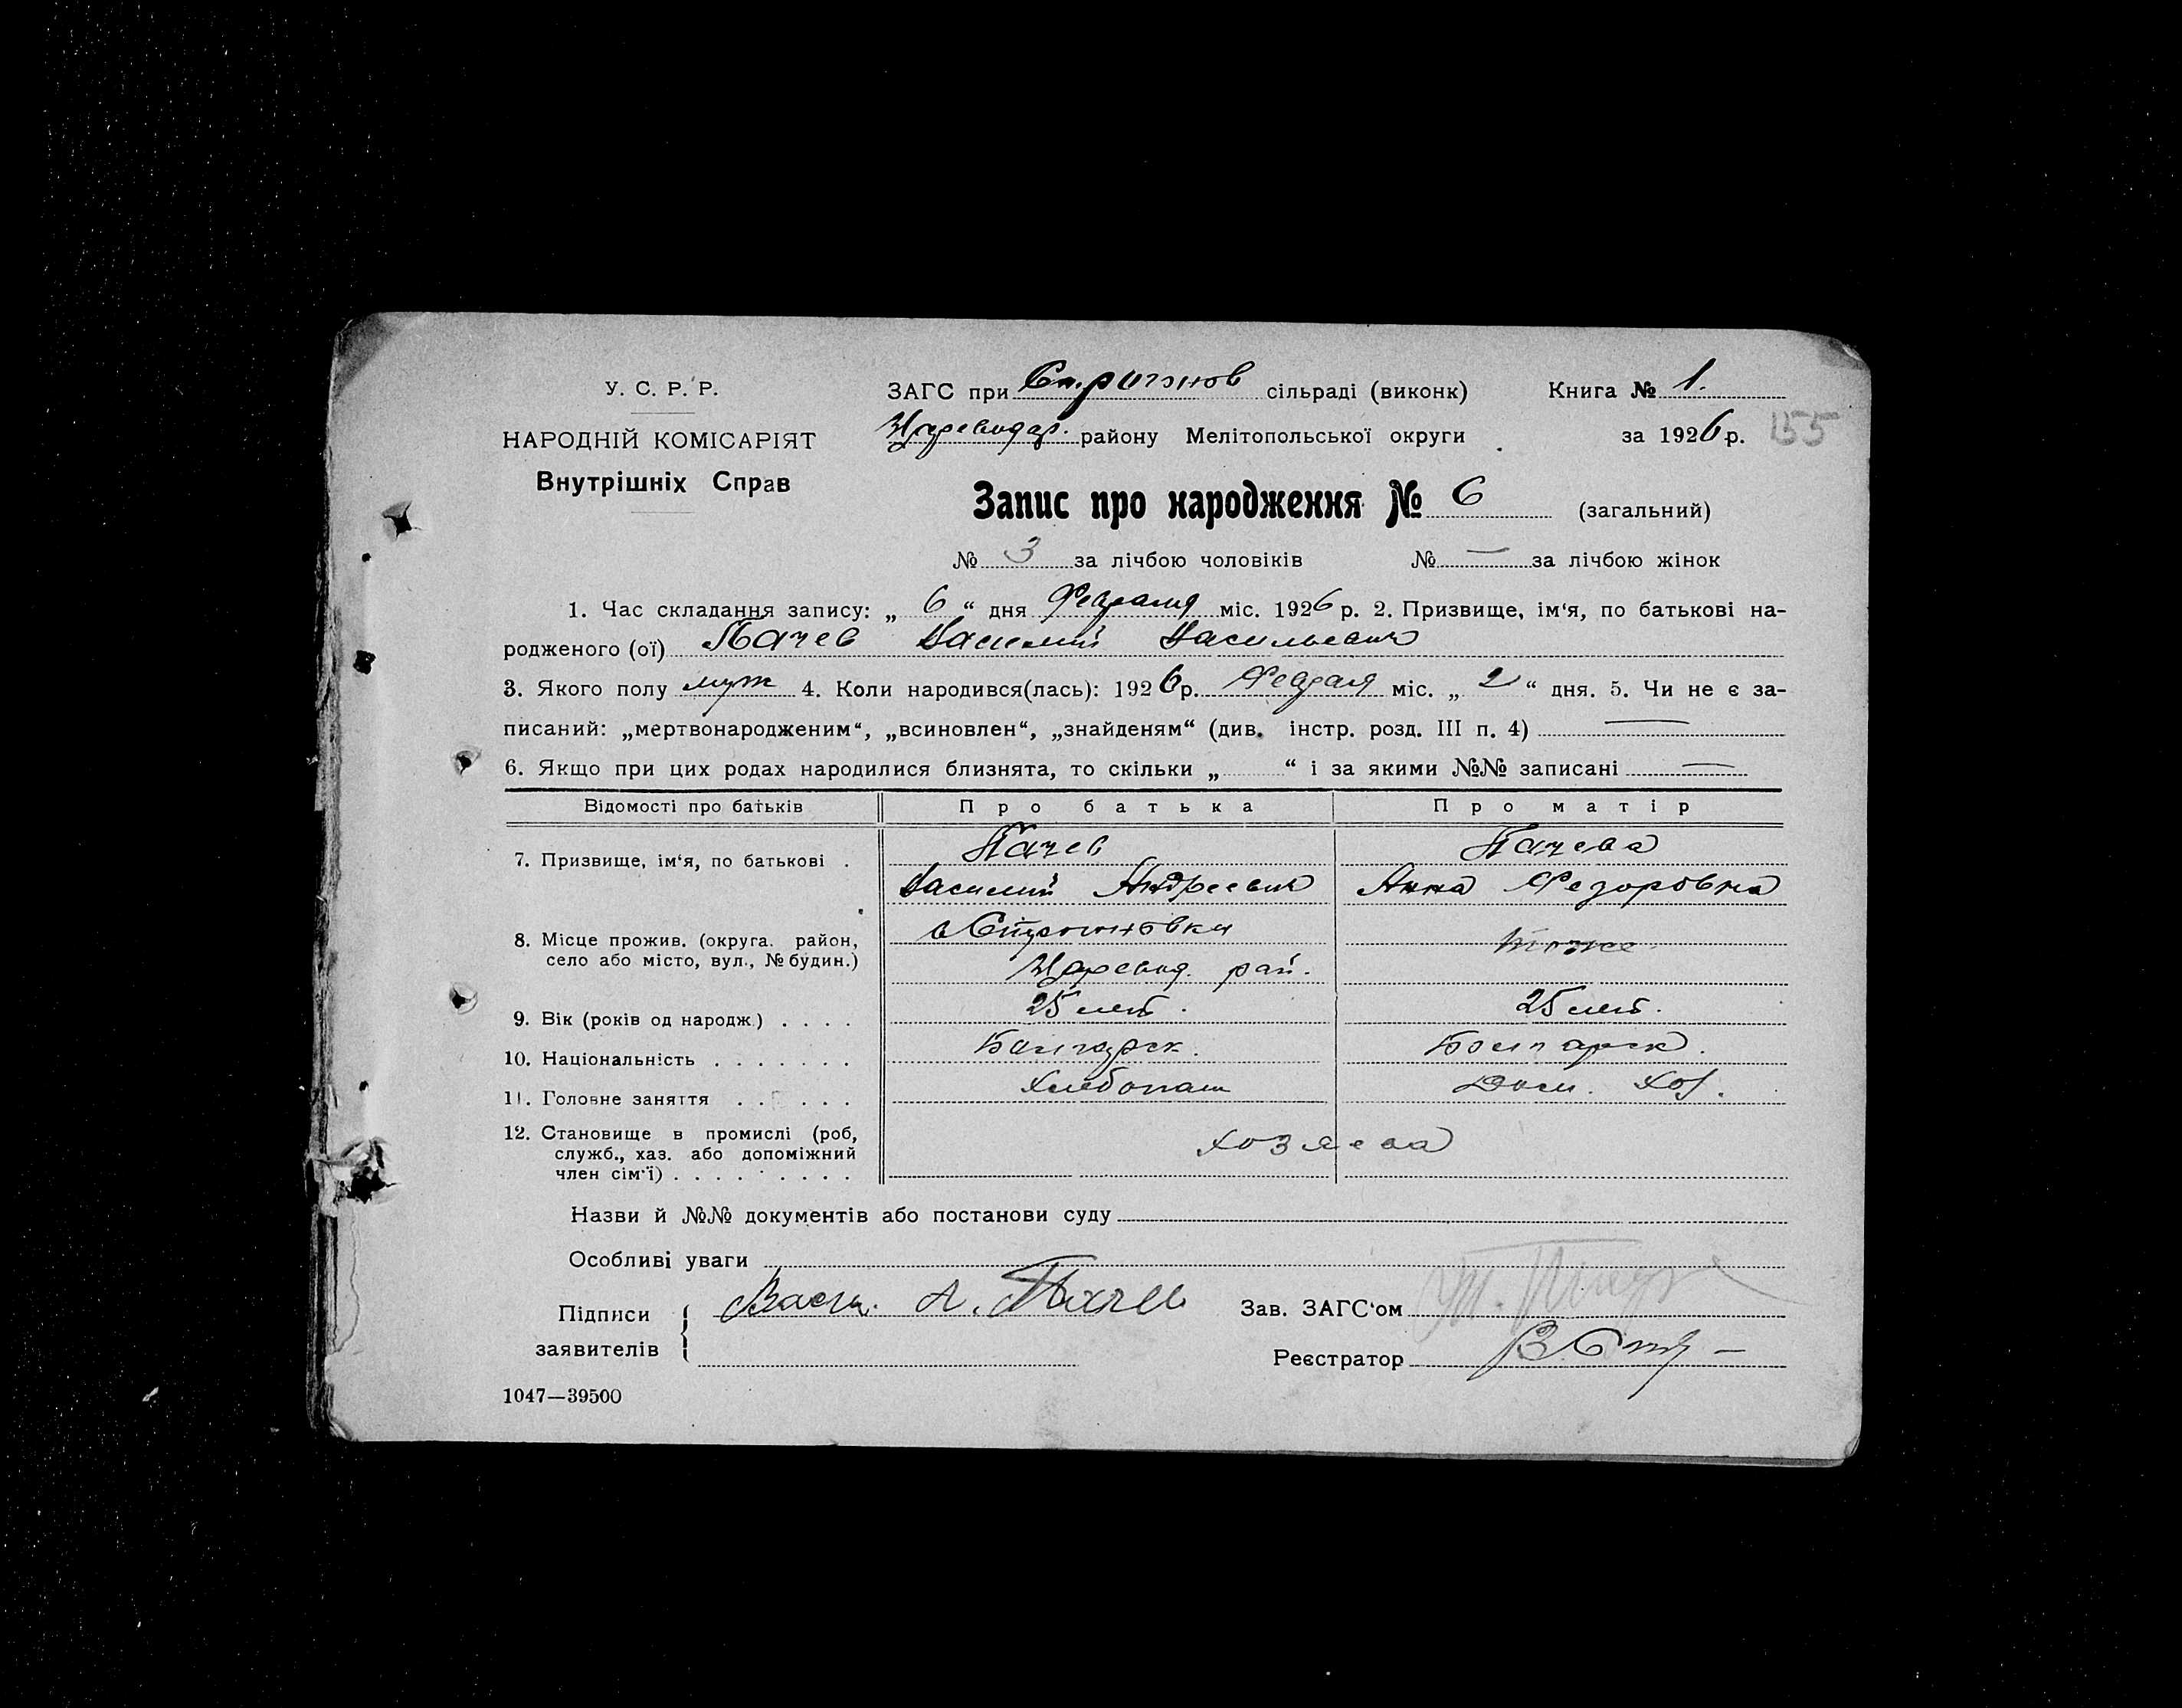 У. С. Р. Р.
НАРОДНІЙ КОМІСАРІЯТ
Внутрішніх Справ
ЗАГС при Строгонов сільраді (виконк) Книга № 1.
Цареводар. району Мелітопольської округи за 1926 р. 155
Запис про народження № 6 (загальний)
№ 3 за лічбою чоловіків № — за лічбою жінок
1. Час складання запису: „ 6 “ дня Февраля міс. 1926 р. 2. Призвище, ім‘я, по батькові на-
родженого (ої) Пачев Василий Васильевич
3. Якого полу муж 4. Коли народився(лась): 1926 р. Февраля міс. „ 2 “ дня. 5. Чи не є за-
писаний: „мертвонародженим“, „всиновлен“, „знайденям“ (див. інстр. розд. III п. 4) —
6. Якщо при цих родах народилися близнята, то скільки „ “ і за якими №№ записані —
Відомості про батьків Про батька Про матір
7. Призвище, ім‘я, по батькові . Пачев Пачева
Василий Андреевич Анна Федоровна
8. Місце прожив. (округа. район, село або місто, вул., № будин.) с Строгоновка тоже
Царевод. рай.
9. Вік (років од народж.) . . . . 25 лет. 25 лет.
10. Національність . . . . . . . Болгарск. Болгарск.
11. Головне заняття . . . . . . Хлебопаш Дом. хоз.
12. Становище в промислі (роб,
служб., хаз. або допоміжний
член сім‘ї) . . . . . . . . . хозяева
Назви й №№ документів або постанови суду
Особливі уваги
Підписи заявителів Васи. А. Пачев
Зав. ЗАГС‘ом
Реєстратор
1047—39500